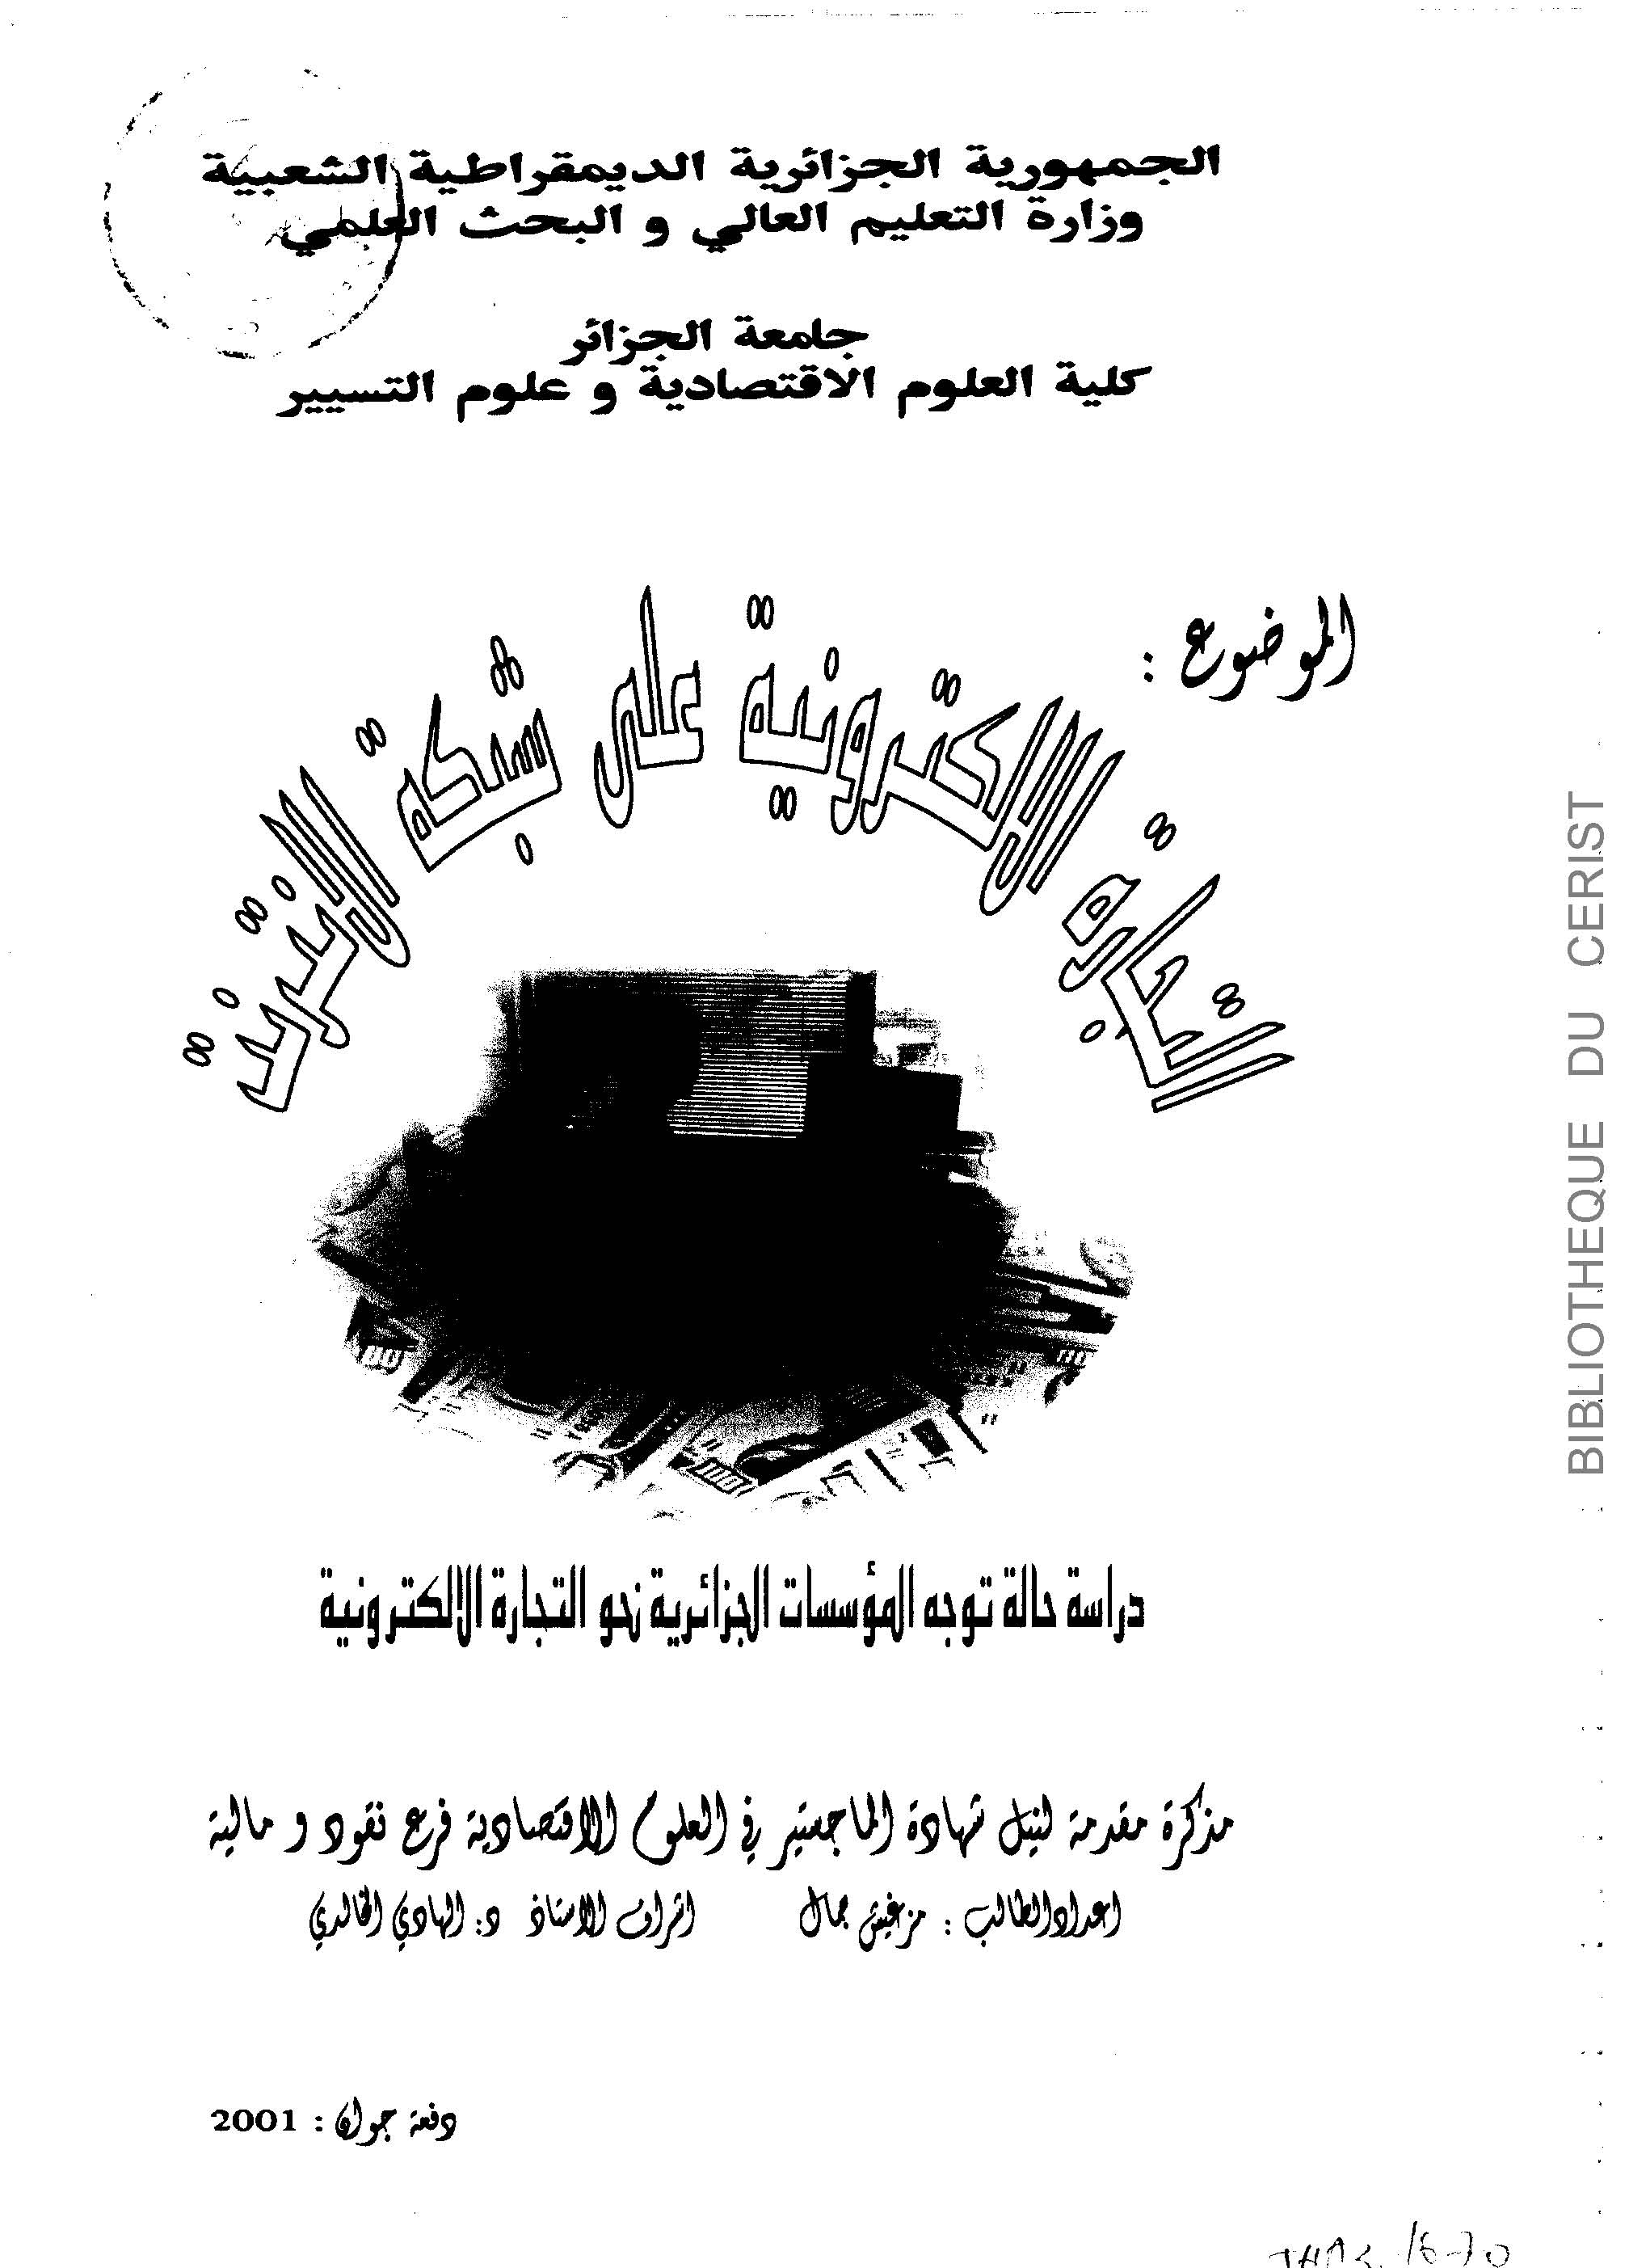 الجمهورية الجزائرية الديمقراطية الشعبية
وزارة التعليم العالي و البحث العلمي
جامعة الجزائر
كلية العلوم الاقتصادية و علوم التسيير
الموضوع :
التجارة الالكترونية على شبكة الانترنت
دراسة حالة توجه المؤسسات الجزائرية نحو التجارة الالكترونية
مذكرة مقدمة لنيل شهادة الماجستير في العلوم الاقتصادية فرع نقود و مالية
اعداد الطالب : مزغيش جمال اشراف الاستاذ د: الهادي الخالدي
دفعة جوان : 2001
BIBLIOTHEQUE DU CERIST